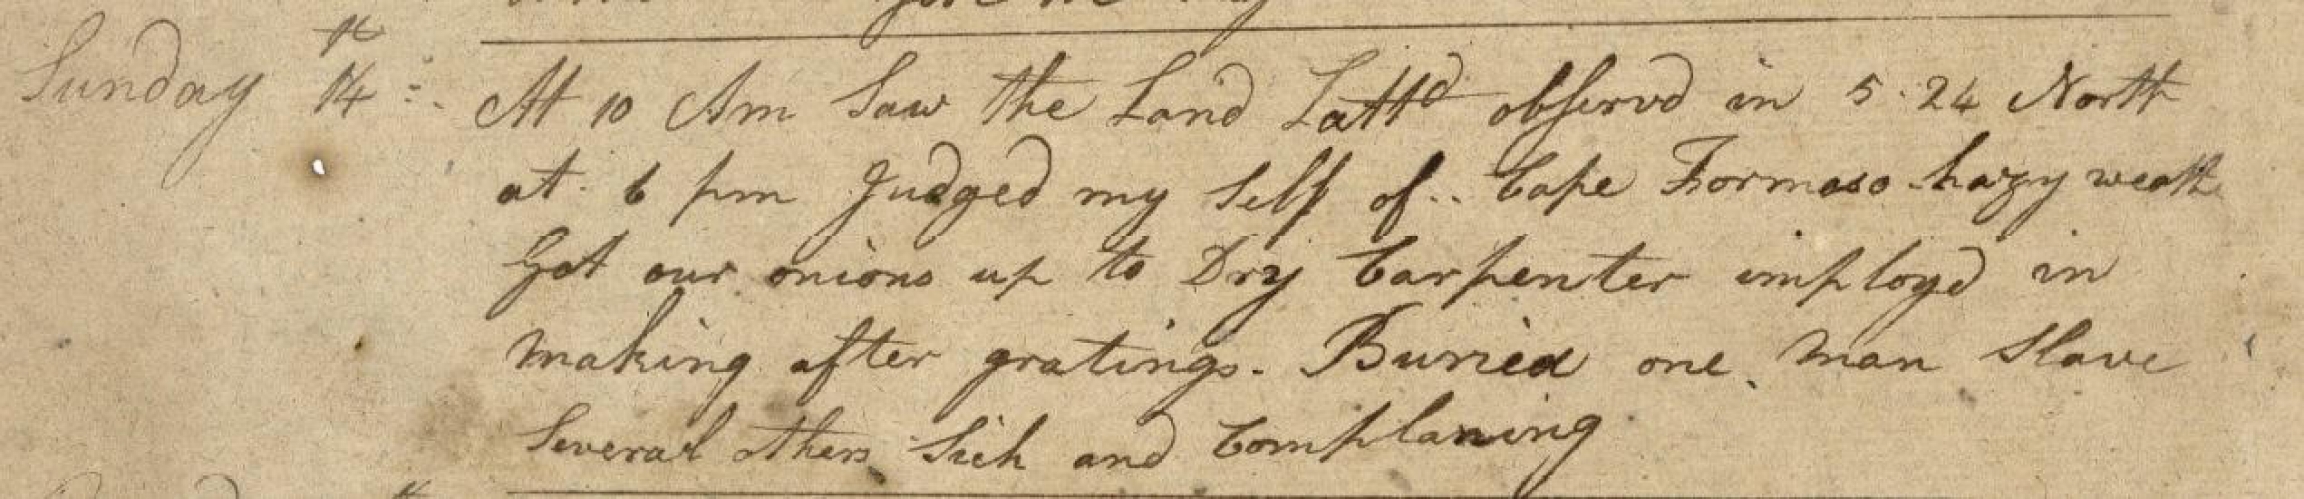 Sunday 14th:. At 10 Am Saw the Land Lattd observd in 5.24 North
at 6 pm Judged my Self of.. Cape Formoso hazy weath
Got our onions up to Dry Carpenter imployd in
making after gratings. Buried one man Slave
Several others Sick and Complaning